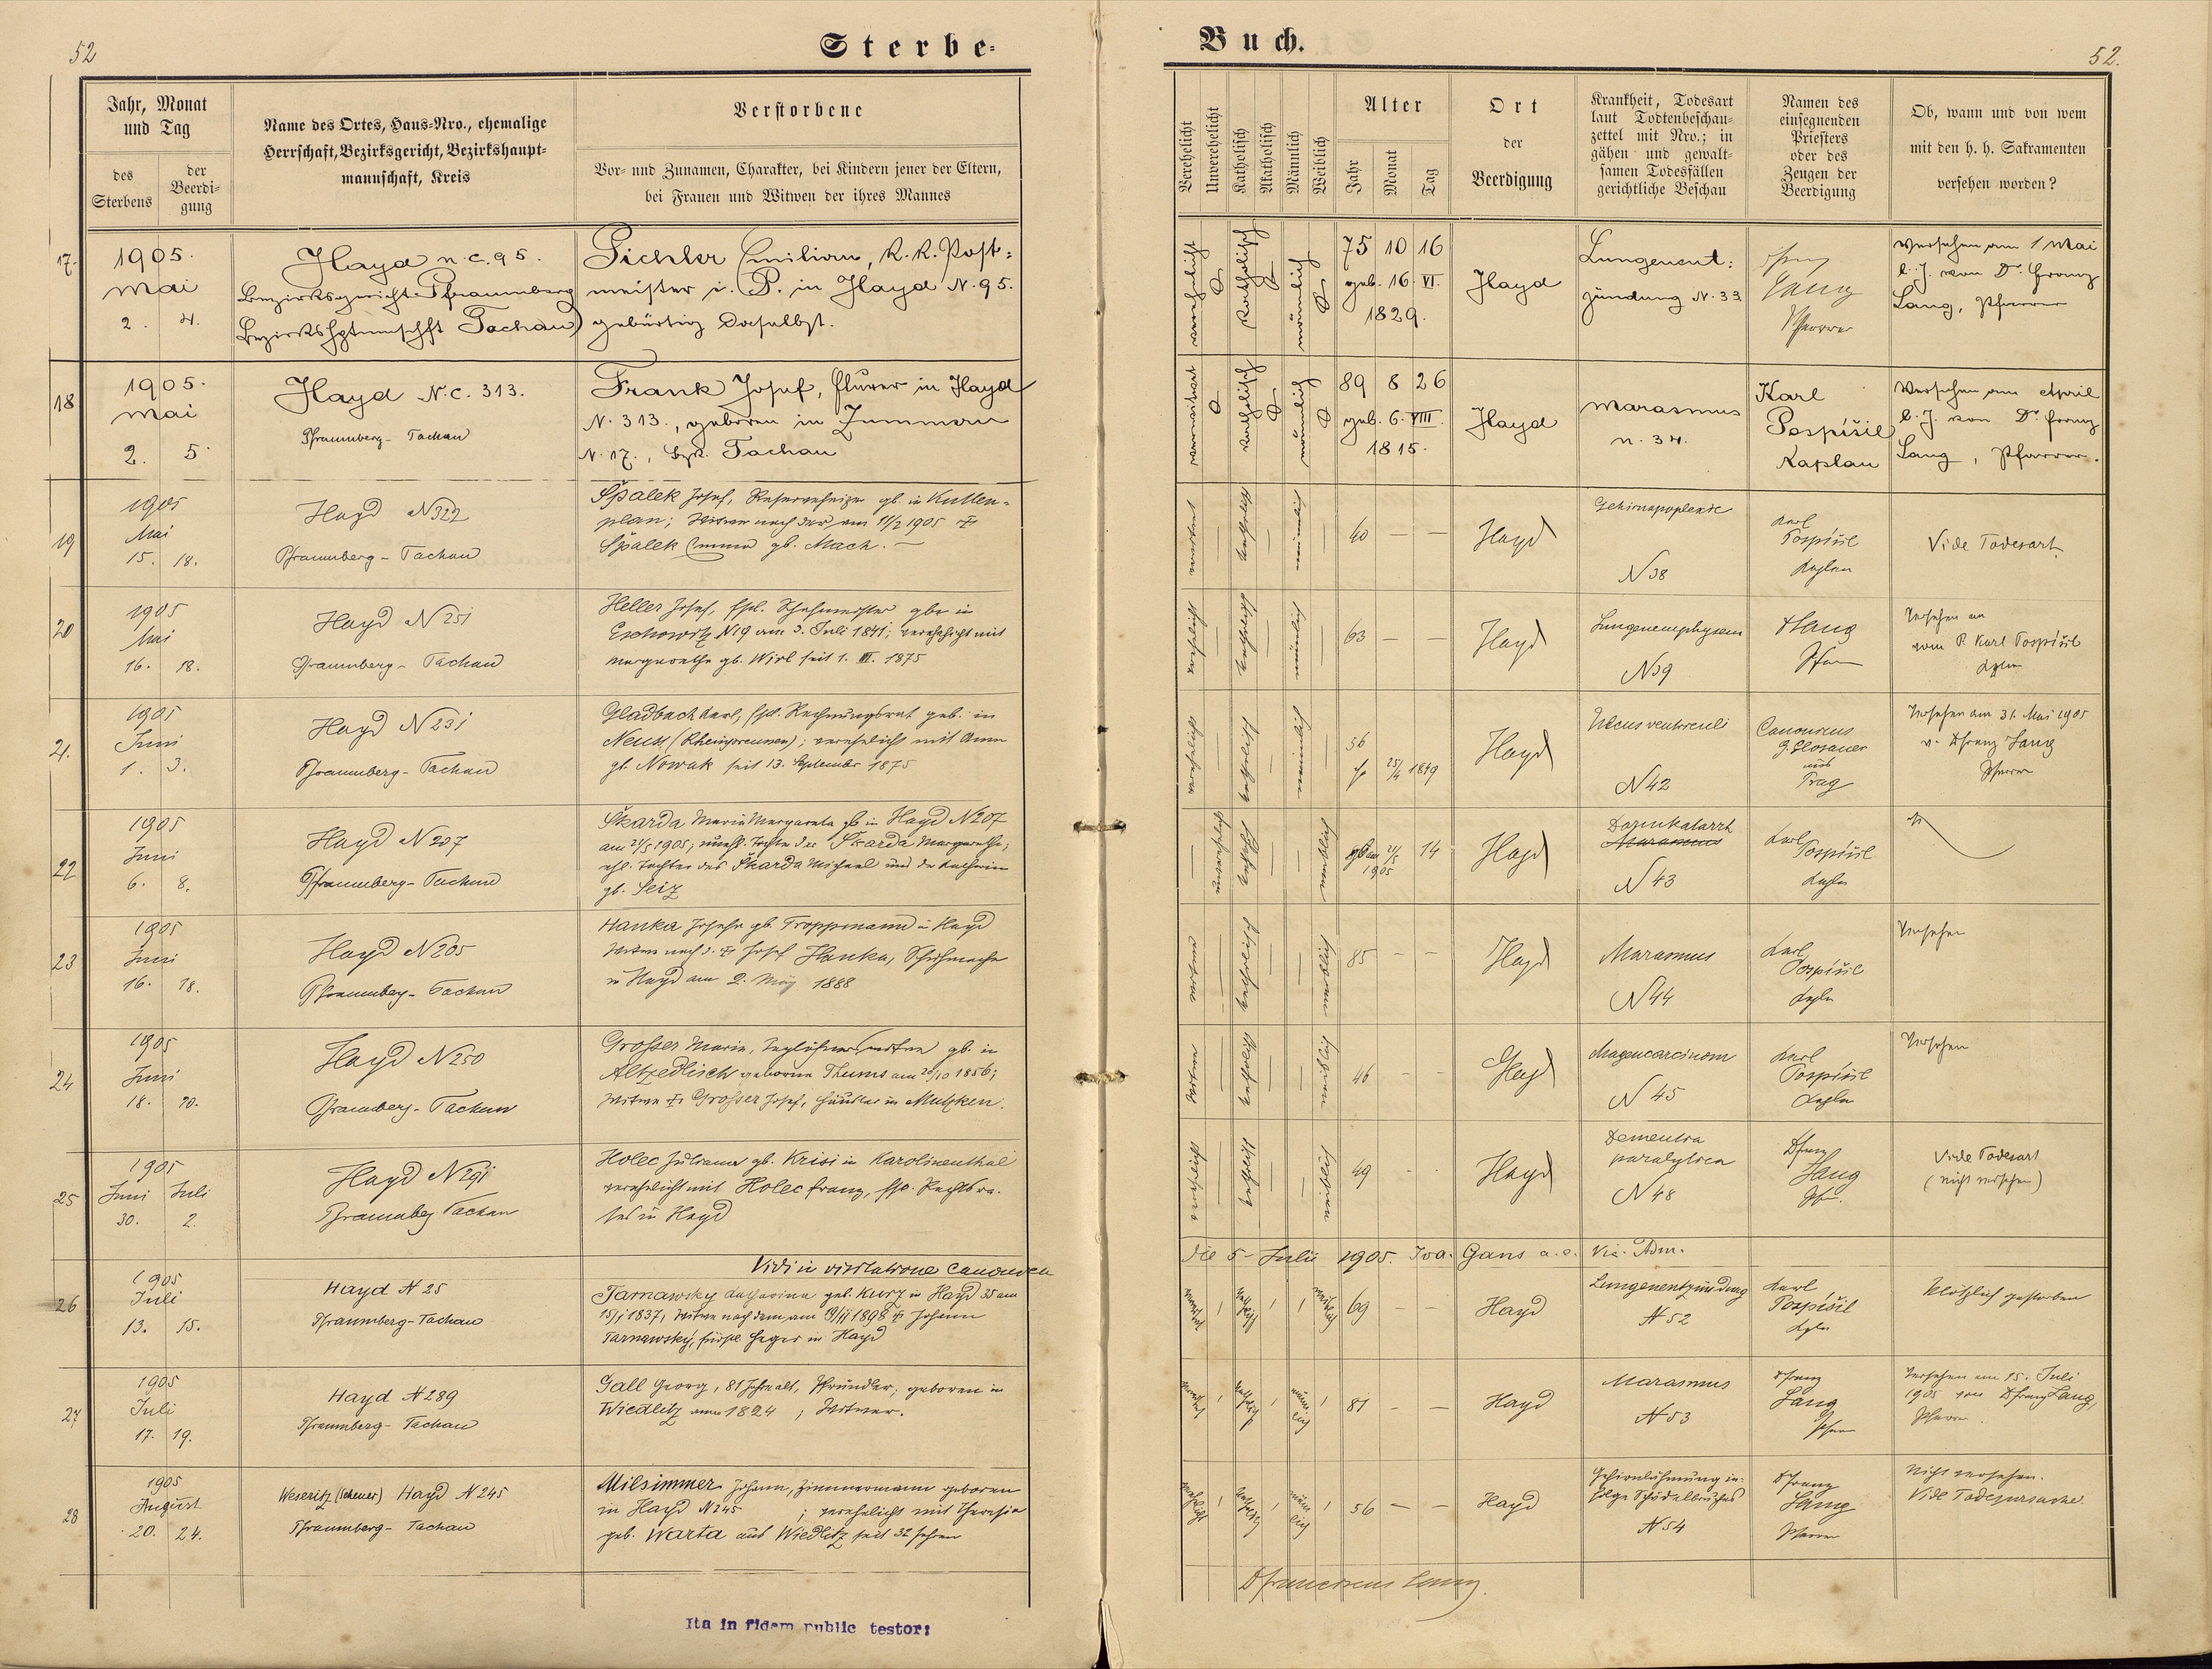 52
Sterbe-
Jahr, Monat
und Tag
des
Sterbens
der
Beerdi-
gung
Name des Ortes, Haus-Nro., ehemalige
Herrschaft, Bezirksgericht, Bezirkshaupt-
mannschaft, Kreis
Verstorbene
Vor- und Zunamen, Charakter, bei Kindern jener der Eltern,
bei Frauen und Witwen der ihres Mannes
17.
1905.
Mai
2. 4.
Hayd n. c. 95.
Bezirksgericht Pfraumberg
Bezirkshptmschft Tachau
Pichler Emilian, K. K. Post-
meister i. P. in Hayd N. 95.
gebürtig daselbst.
18
1905.
Mai
2. 5.
Hayd N. C. 313.
Pfraumberg - Tachau
Frank Josef, in Hayd
N. 313., geboren in
N. 17., Bzk. Tachau
19
1905
Mai
15. 18.
Hayd N 322
Pfraumberg - Tachau
Špalek Josef, Reserveheizer gb. in Kutten-
plan; Witwer nach der am 11/2 1905 †
Špalek Emma gb. Mach. —
20
1905
Mai
16. 18.
Hayd N 251
Pfraumberg - Tachau
Heller Josef, fstl. gb. in
Eschowitz N 19 am 3. Juli 1841; verehelicht mit
Margarethe gb. Wirl seit 1. III. 1875
21.
1905
Juni
1. 3.
Hayd N 231
Pfraumberg - Tachau
Gladbach Karl, fstl. Rechnungsrat geb. in
Neuss (Rheinpreussen); verehelicht mit Anna
gb. Nowak seit 13. September 1875
22
1905
Juni
6. 8.
Hayd N 207
Pfraumberg - Tachau
Škarda Maria Margareta gb in Hayd N 207
am 21/5 1905; unehl. Tochter der Škarda Margarethe;
ehl. Tochter des Škarda Michael und der Katharina
gb. Seiz
23
1905
Juni
16. 18.
Hayd N 205
Pfraumberg - Tachau
Hanka Josefa gb. Troppmann in Hayd
Witwe nach d. † Josef Hanka, Schuhmacher
in Hayd am 2. März 1888
24
1905
Juni
18. 20.
Hayd N 250
Pfraumberg - Tachau
Grosser Marie, Taglöhnerswitwe gb. in
Altzedlisch geborene Thums am 20/10 1856;
Witwe † Grosser Josef, Häusler in Mutzken.
25
1905
Juni Juli
30. 2.
Hayd N 291
Pfraumberg Tachau
Holec Juliana gb. Krisi in Karolinenthal
verehelicht mit Holec Franz, fstl. Rechtsra-
tes in Hayd
Vidi in visitatione canonica
26
1905
Juli
13. 15.
Hayd N 25
Pfraumberg - Tachau
Tarnawsky Katharina geb. Kurz in Hayd 35 am
15/1 1837, Witwe nach dem am 19/II 1898 † Johann
Tarnawsky, fürstl. Heger in Hayd
27
1905
Juli
17. 19.
Hayd N 289
Pfraumberg - Tachau
Gall Georg, 81 Jahre alt, Pfründler, geboren in
Wiedlitz anno 1824; Witwer.
28
1905
August
20. 24.
Weseritz (Scheuer) Hayd N 245
Pfraumberg - Tachau
Milsimmer Johann, Zimmermann geboren
in Hayd N 245; verehelicht mit Theresia
geb. Warta aus Wiedlitz seit 32 Jahren
Ita in fidem public testor:
Buch.
52.
Verehelicht
Unverehelicht
Katholisch
Akatholisch
Männlich
Weiblich
Alter
Jahr
Monat
Tag
Ort
der
Beerdigung
Krankheit, Todesart
laut Todtenbeschau-
zettel mit Nro.; in
gähen und gewalt-
samen Todesfällen
gerichtliche Beschau
Namen des
einsegnenden
Priesters
oder des
Zeugen der
Beerdigung
Ob, wann und von wem
mit den h. h. Sakramenten
versehen worden?
verehelicht
katholisch
männlich
75 10 16
geb. 16. VI.
1829.
Hayd
Lungenent-
zündung N. 33
Lang
Pfarrer
Versehen am 1 Mai
l. J. von Dr. Franz
Lang, Pfarrer
verwitwet
katholisch
männlich
89 8 26
geb. 6. VIII.
1815.
Hayd
Marasmus
n. 34.
Karl
Pospíšil
Kaplan
Versehen am April
l. J. von Dr. Franz
Lang, Pfarrer.
verwitwet
katholisch
männlich
60 — —
Hayd
Gehirnapoplexie
N 38
Karl
Pospíšil
Kaplan
Vide Todesart
verehelicht
katholisch
männlich
63 — —
Hayd
Lungenemphysem
N 39
Lang
Pfarrer
Versehen am
vom P. Karl Pospíšil
Kaplan
verehelicht
katholisch
männlich
56
25/4 1849
Hayd
Ulcus ventriculi
N 42
Canonicus
G. Glosauer
aus
Prag
Versehen am 31. Mai 1905
v. D Franz Lang
Pfarrer
unverehelicht
katholisch
weiblich
gb am 21/5
1905
14
Hayd
Darmkatarrh
Marasmus
N 43
Karl
Pospíšil
Kaplan
Witwe
katholisch
weiblich
85 — —
Hayd
Marasmus
N 44
Karl
Pospíšil
Kaplan
Versehen
Witwe
katholisch
weiblich
46 — —
Hayd
Magencarcinom
N 45
Karl
Pospíšil
Kaplan
Versehen
verehelicht
katholisch
weiblich
49
Hayd
Dementia
paralytica
N 48
D Franz
Lang
Pfr.
Vide Todesart
(nicht versehen)
die 5 - Julii 1905. Joa. Gans a. e. Vic. Adm.
verwitwet
katholisch
weiblich
69 — —
Hayd
Lungenentzündung
N 52
Karl
Pospíšil
Kaplan
Plötzlich gestorben
verwitwet
katholisch
männlich
81 — —
Hayd
Marasmus
N 53
D Franz
Lang
Pfarrer
Versehen am 15. Juli
1905 von D Franz Lang,
Pfarrer.
verehelicht
katholisch
männlich
56 — —
Hayd
Gehirnlähmung in-
folge Schädelbruches
N 54
D Franz
Lang
Pfarrer
Nicht versehen.
Vide Todesursache.
D Franciscus Lang.